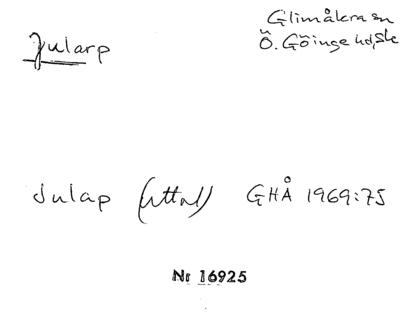 Jularp
Glimåkra sn
Ö. Göinge hd, Sk
Julap (uttal) GHÅ 1969:75
Nr 16925